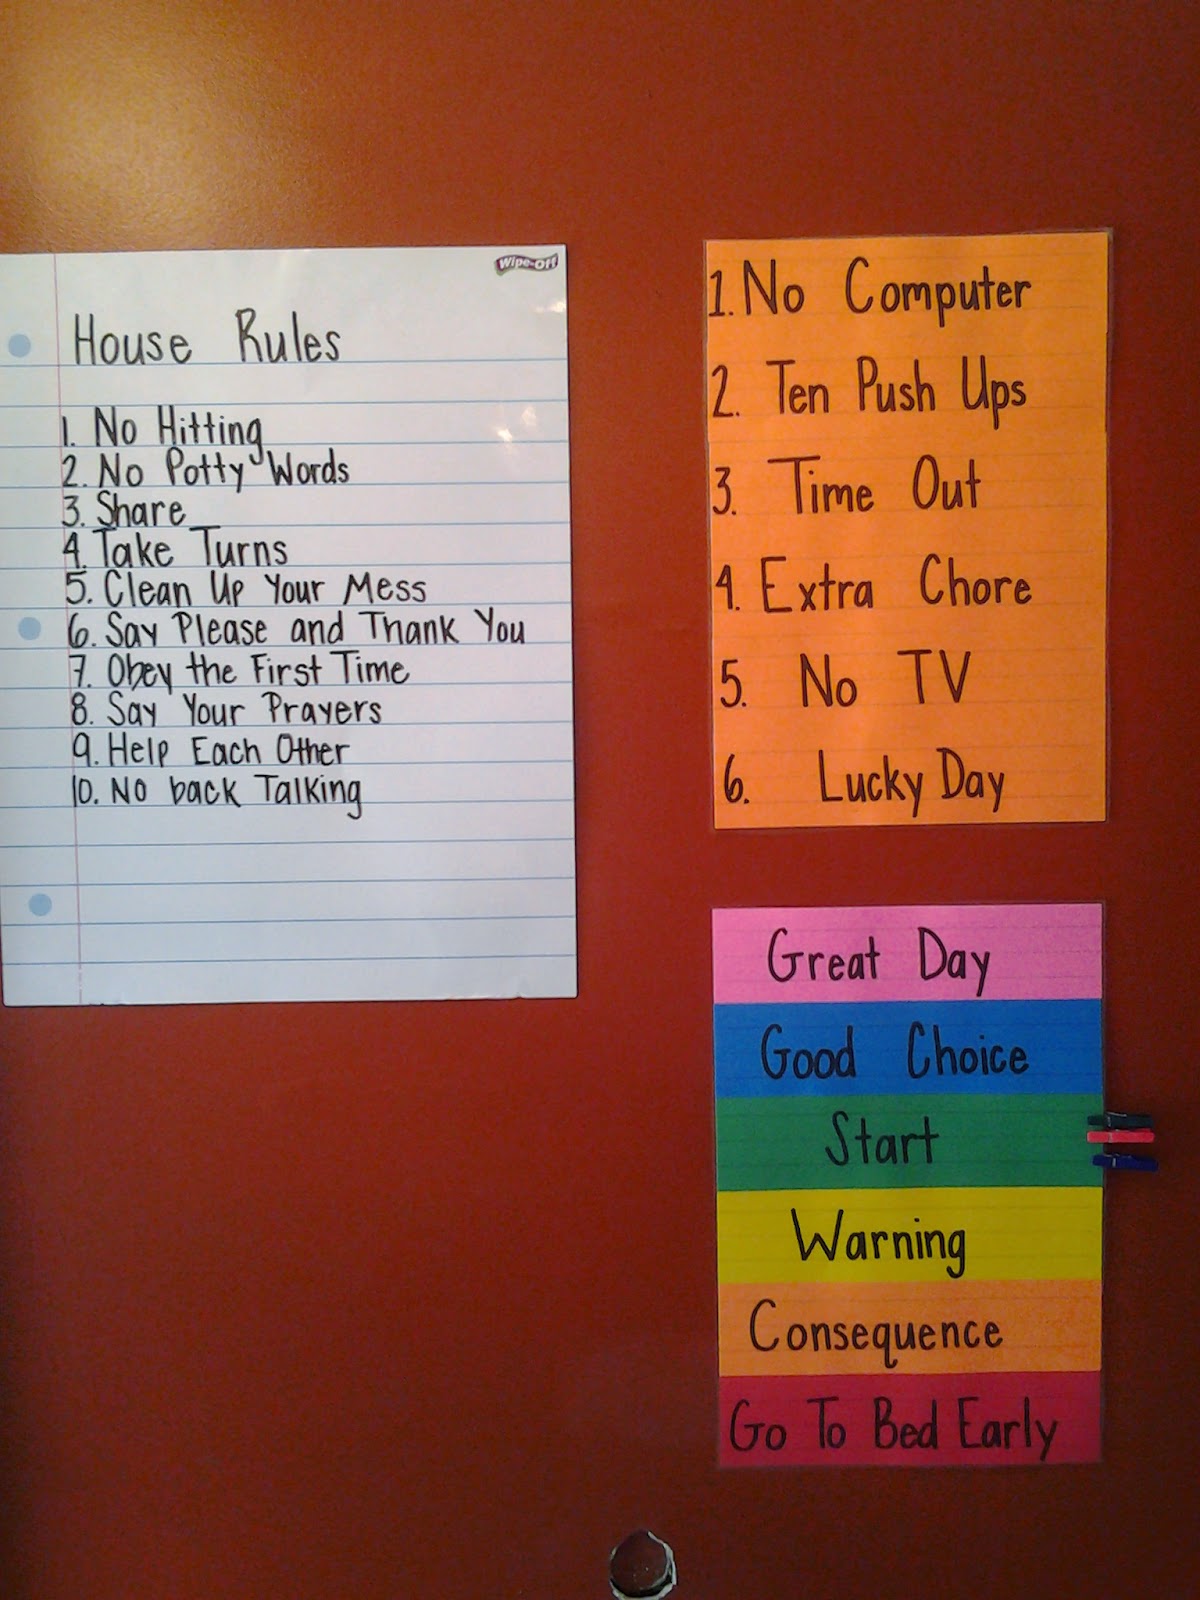 Wipe-Off
House Rules
1. No Hitting
2. No Potty Words
3. Share
4. Take Turns
5. Clean Up Your Mess
6. Say Please and Thank You
7. Obey the First Time
8. Say Your Prayers
9. Help Each Other
10. No back Talking
1. No Computer
2. Ten Push Ups
3. Time Out
4. Extra Chore
5. No TV
6. Lucky Day
Great Day
Good Choice
Start
Warning
Consequence
Go To Bed Early